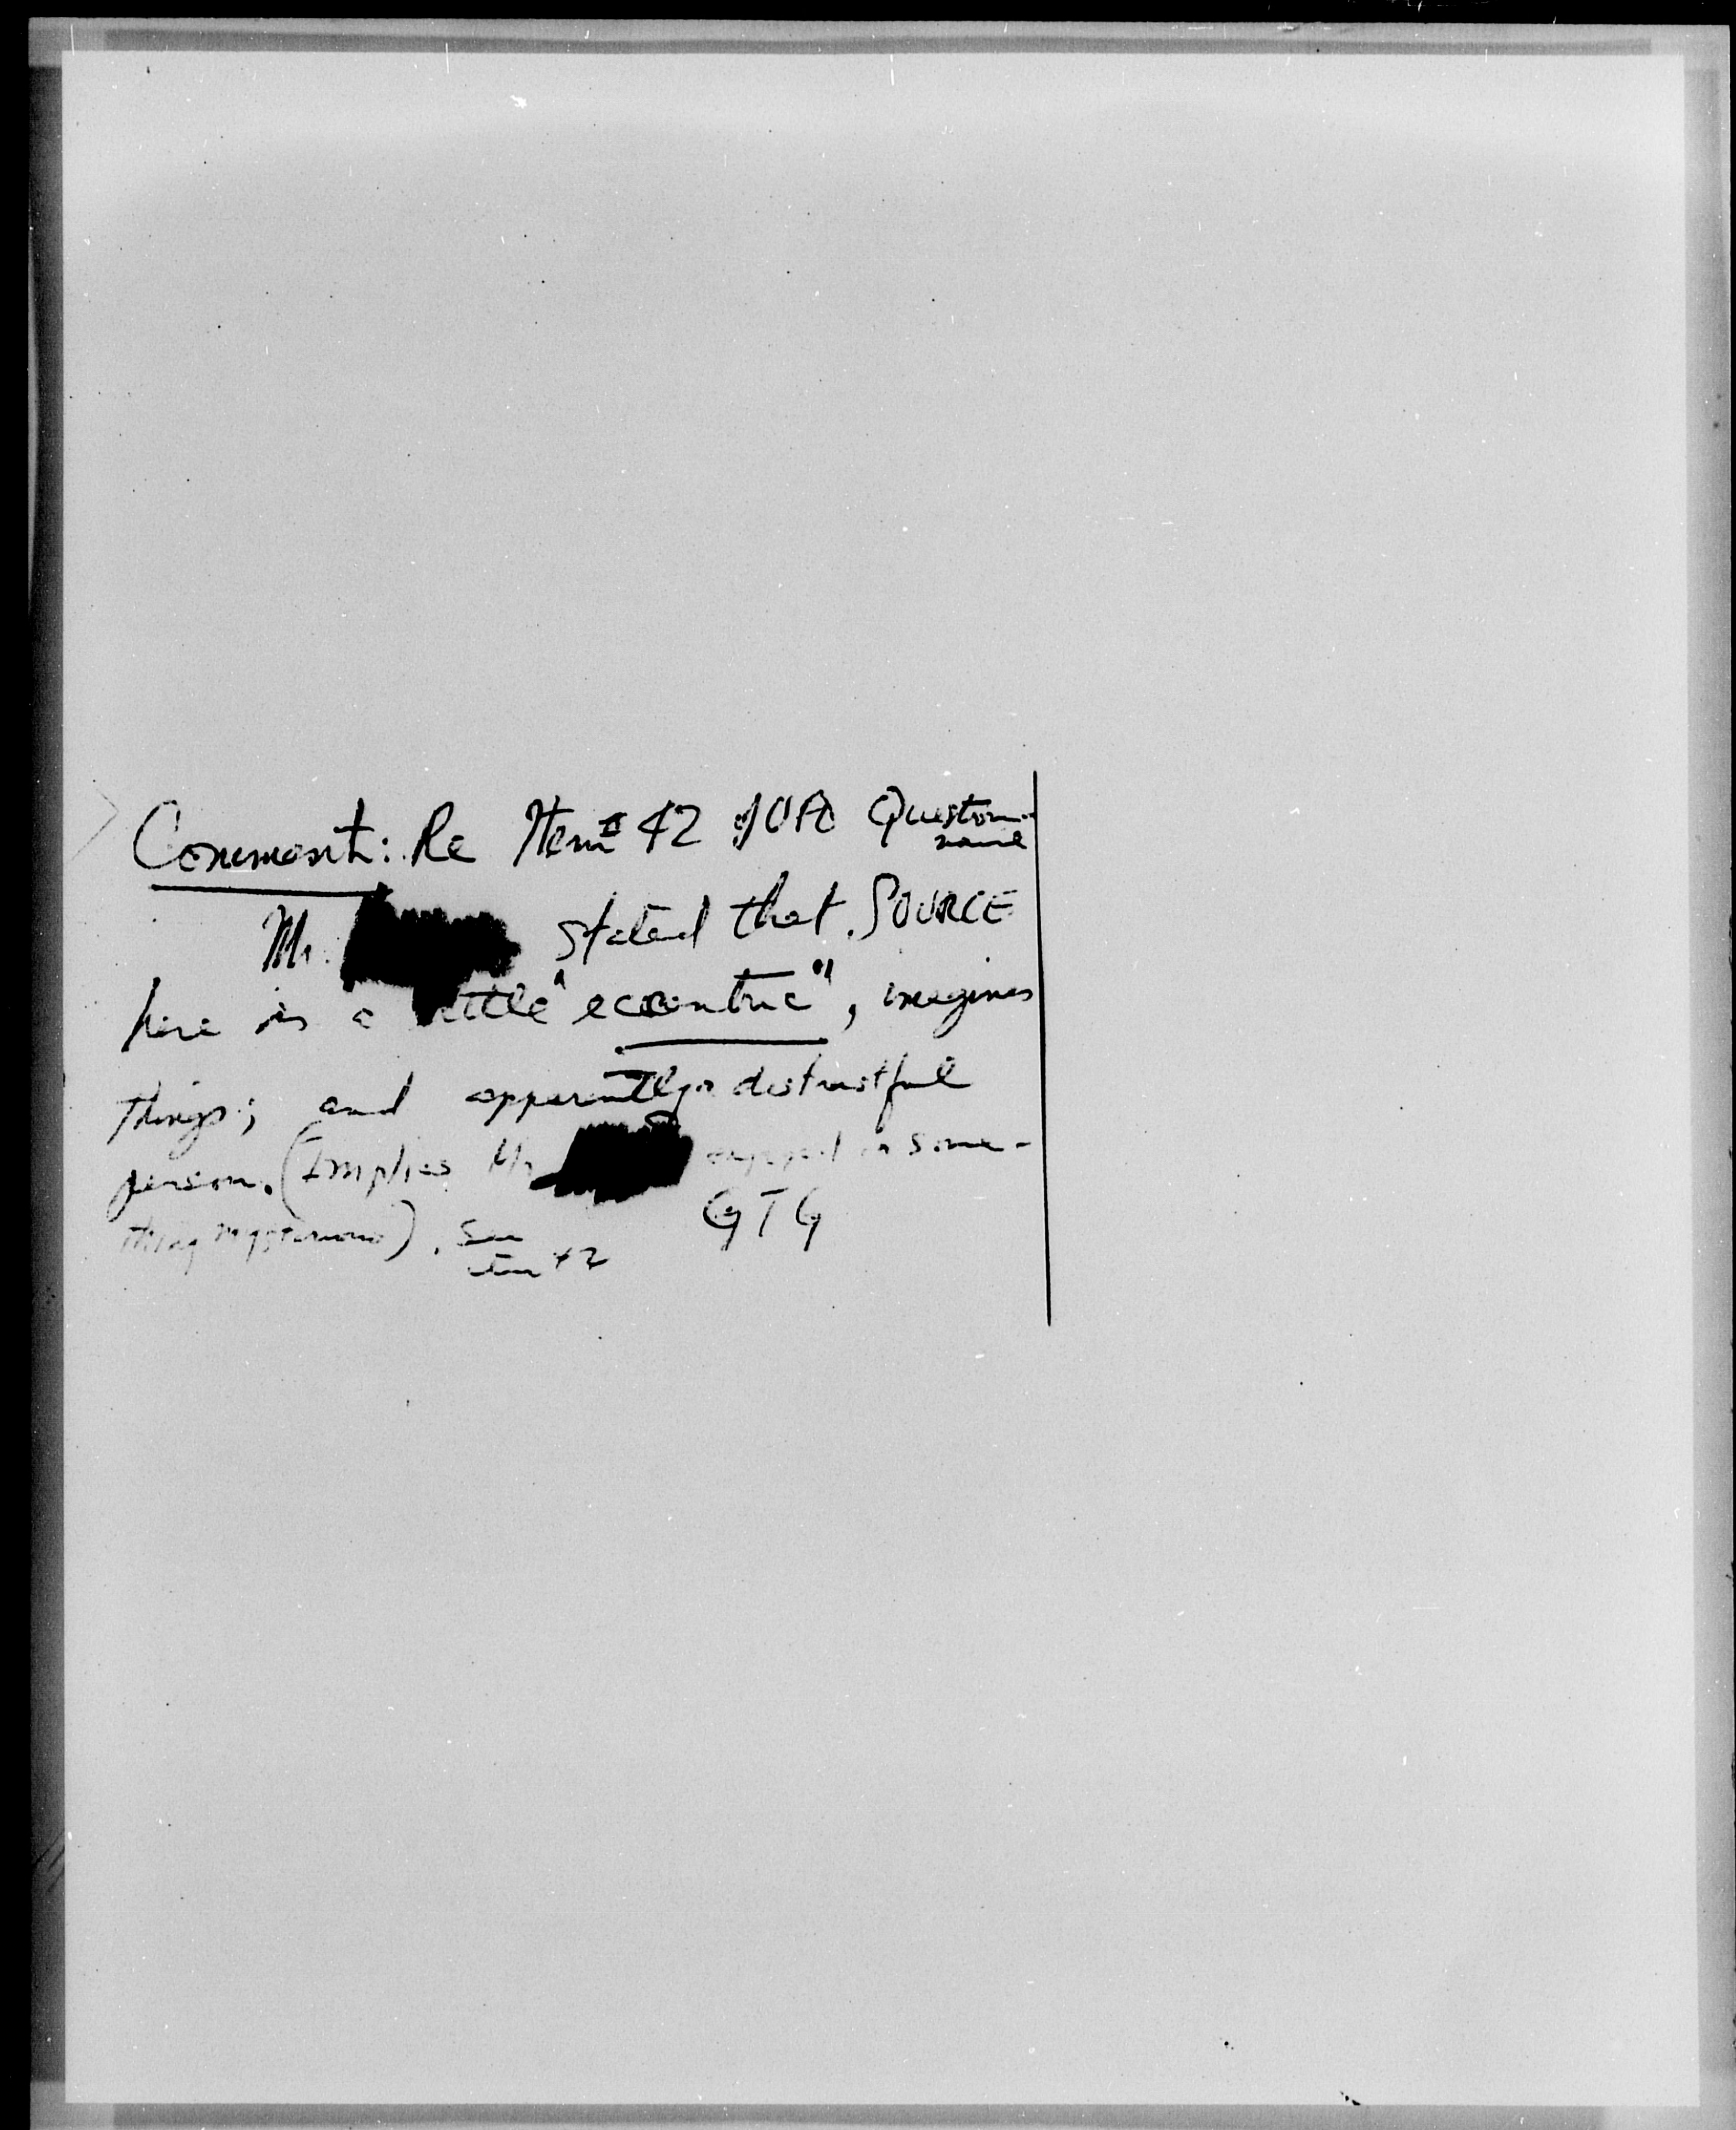 Comment: Re Item # 42 of UFO Question-
naire
Mr. stated that SOURCE
here is a little "eccentric", imagines
things; and apparently a distrustful
person. (Implies Mr. engaged in some-
thing mysterious). See
item 42
GTG